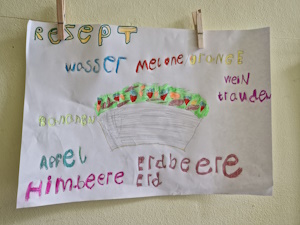 Rezept
wasser melone orange
wein
trauden
Banane
Apfel
Himbeere
Erdbeere
Erd